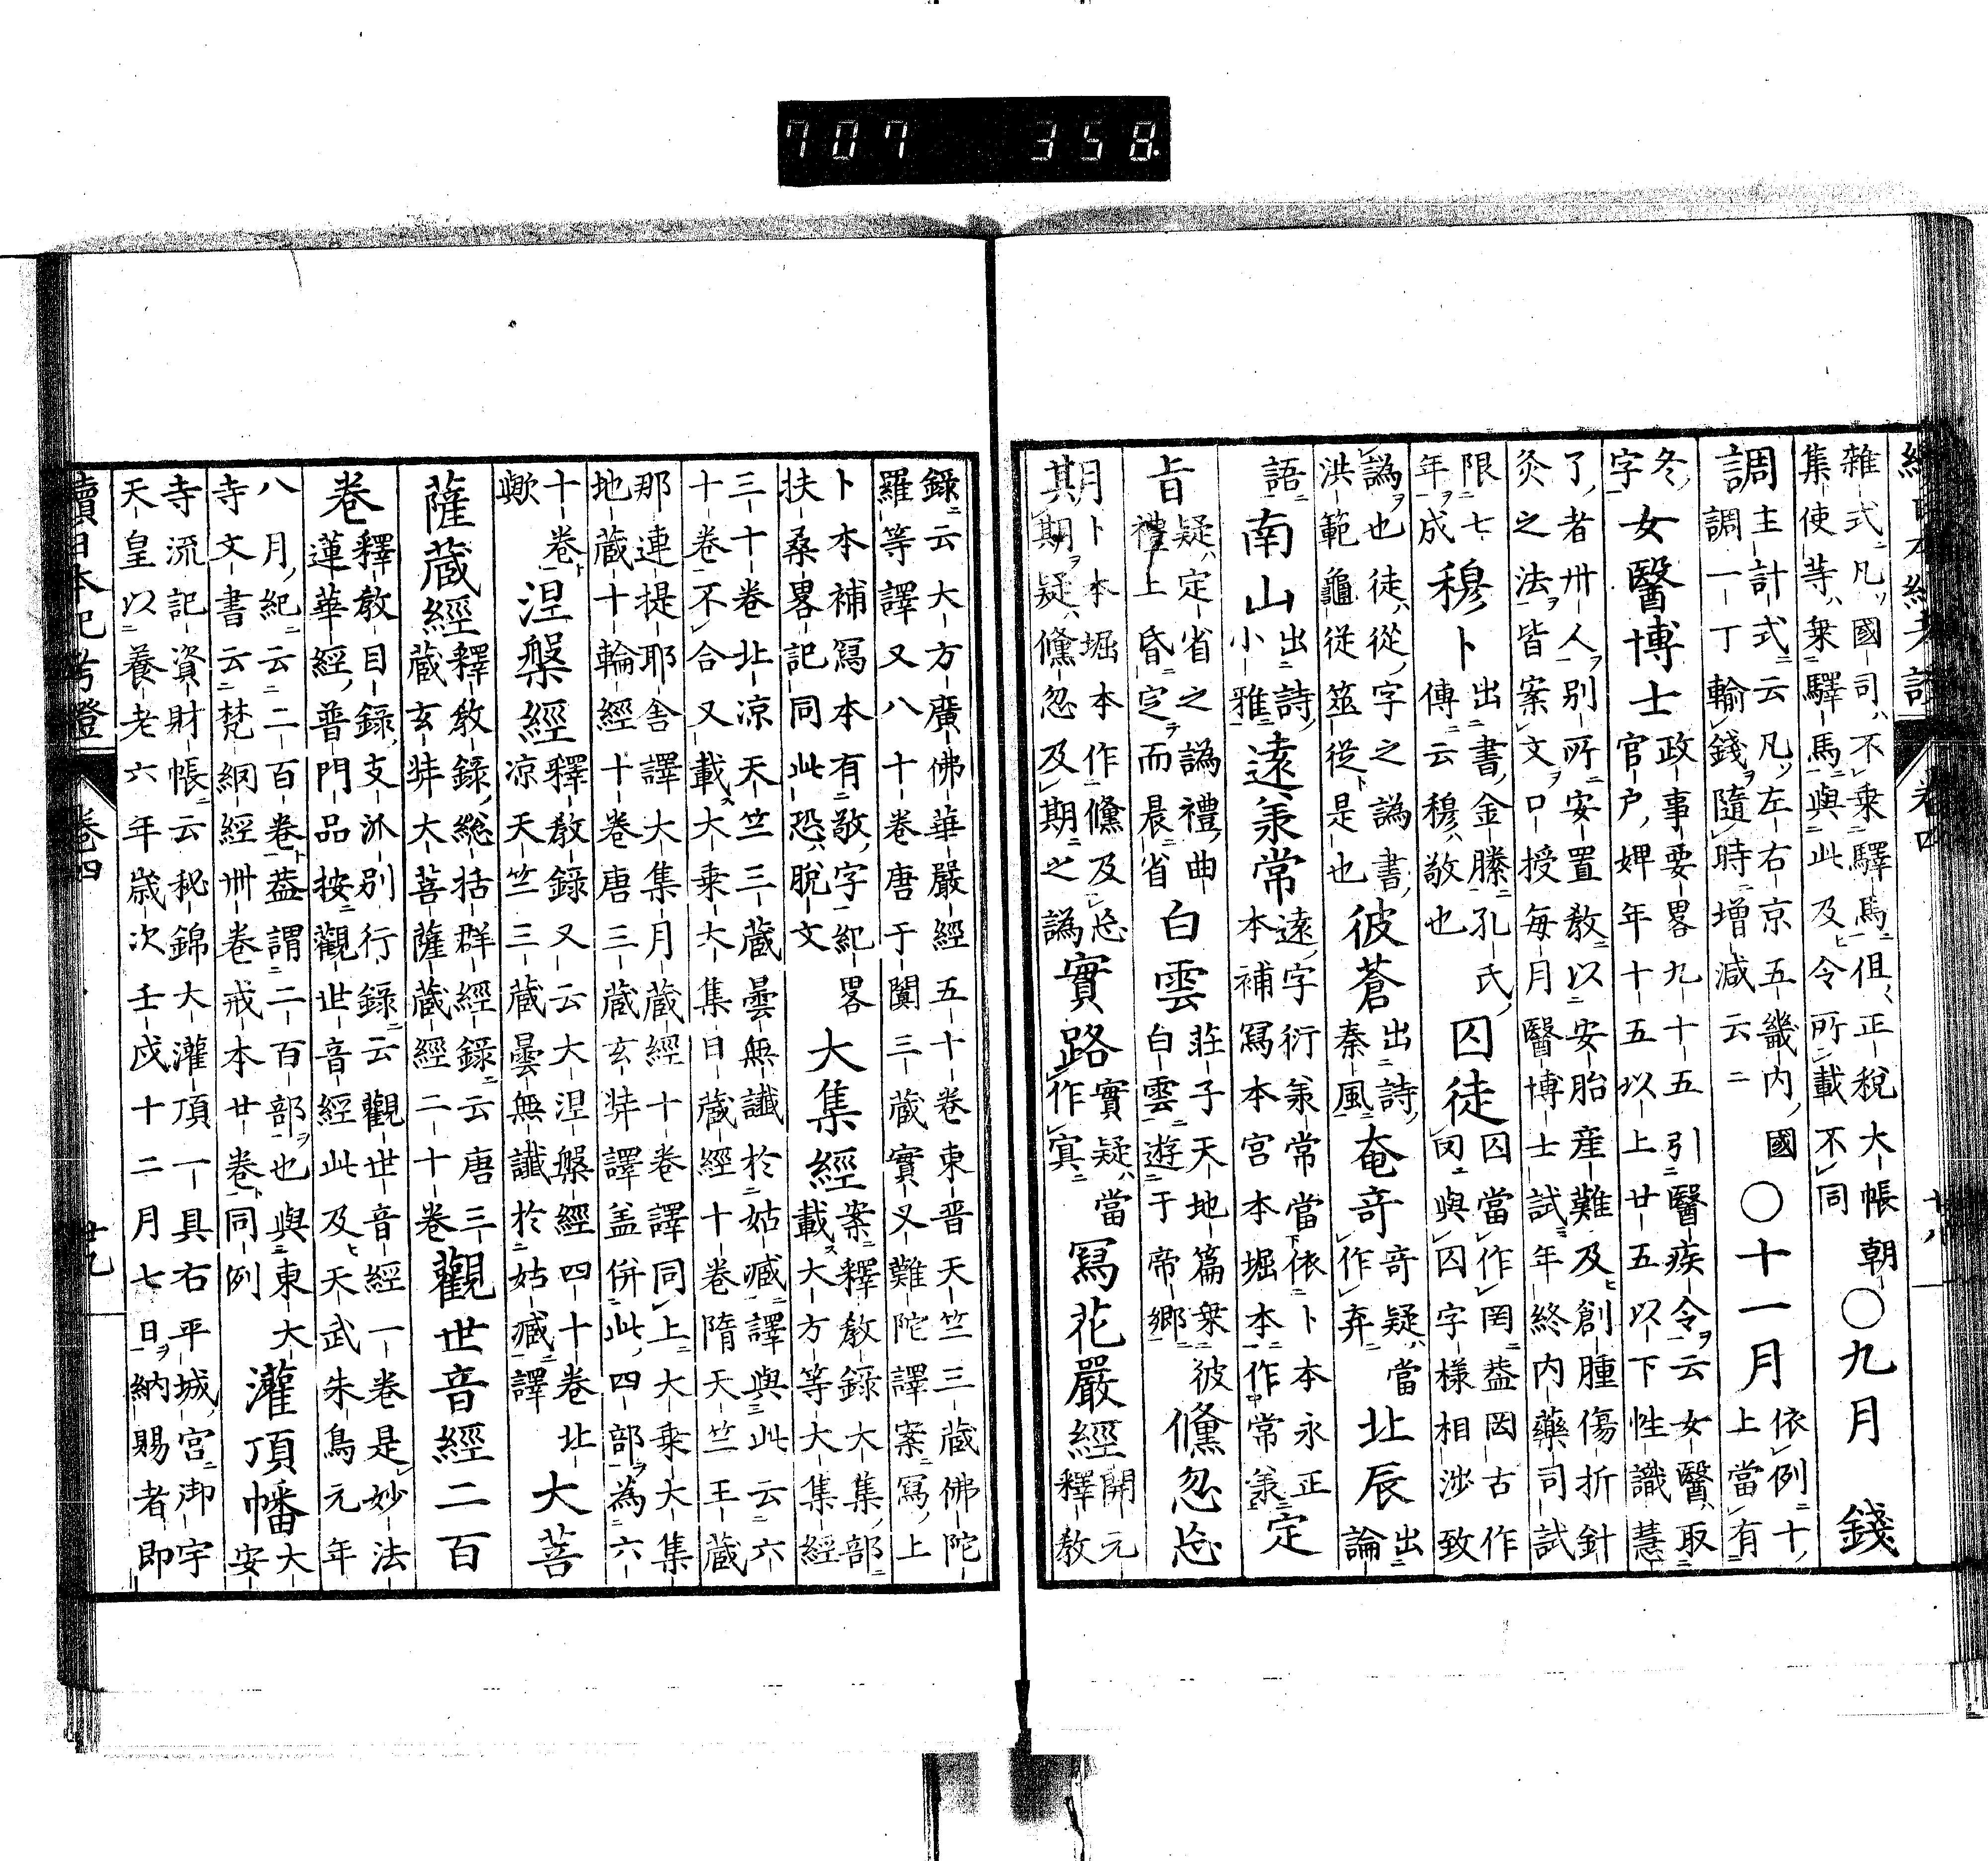 707 358
續日本紀考證 卷四 廿八
雜式凡國司不乘驛馬但正稅大帳朝
集使等乘驛馬與此及令所載不同
〇九月 錢
調
主計式云凡左右京五畿內國
調一丁輸錢隨時增減云云
〇十一月
依例十
上當有
冬
字
女醫博士
政事要畧九十五引醫疾令云女醫取
官戶婢年十五以上廿五以下性識慧
了者卅人別所安置教以安胎産難及創腫傷折針
灸之法皆案文口授每月醫博士試年終內藥司試
限七
年成
穆卜
出書金縢孔氏
傳云穆敬也
囚徒
囚當作罔盖罔古作
㓁與囚字樣相涉致
譌也徒從字之譌書
洪範龜從筮從是也
彼蒼
出詩
秦風
奄奇
奇疑當
作弃
北辰
出
論
語
南山
出詩
小雅
遠羕常
遠字衍羕常當依卜本永正
本補寫本宮本堀本作常羕
定
旨
疑定省之譌禮曲
禮上昏定而晨省
白雲
莊子天地篇乘彼
白雲遊于帝鄉
儵忽忩
期
月卜本堀本作儵及忩
期期疑儵忽及期之譌
實路
實疑當
作寘
寫花嚴經
開元
釋教
錄云大方廣佛華嚴經五十卷東晋天竺三藏佛陀
羅等譯又八十卷唐于闐三藏實叉難陀譯案寫上
卜本補寫本有敬字紀畧
扶桑畧記同此恐脫文
大集經
案釋教錄大集部
載大方等大集經
三十卷北凉天竺三藏曇無讖於姑臧譯與此云六
十卷不合又載大乘大集日藏經十卷隋天竺王藏
那連提耶舍譯大集月藏經十卷譯同上大乘大集
地藏十輪經十卷唐三藏玄奘譯盖併此四部為六
十卷
歟
涅槃經
釋教錄又云大涅槃經四十卷北
凉天竺三藏曇無讖於姑臧譯
大菩
薩藏經
釋教錄總括群經錄云唐三
藏玄奘大菩薩藏經二十卷
觀世音經二百
卷
釋教目錄支派別行錄云觀世音經一卷是妙法
蓮華經普門品按觀世音經此及天武朱鳥元年
八月紀云二百卷盖謂二百部也與東大
寺文書云梵網經卌卷戒本廿卷同例
灌頂幡
大
安
寺流記資財帳云秘錦大灌頂一具右平城宮御宇
天皇以養老六年歲次壬戌十二月七日納賜者即
續日本紀考證 卷四 廿九